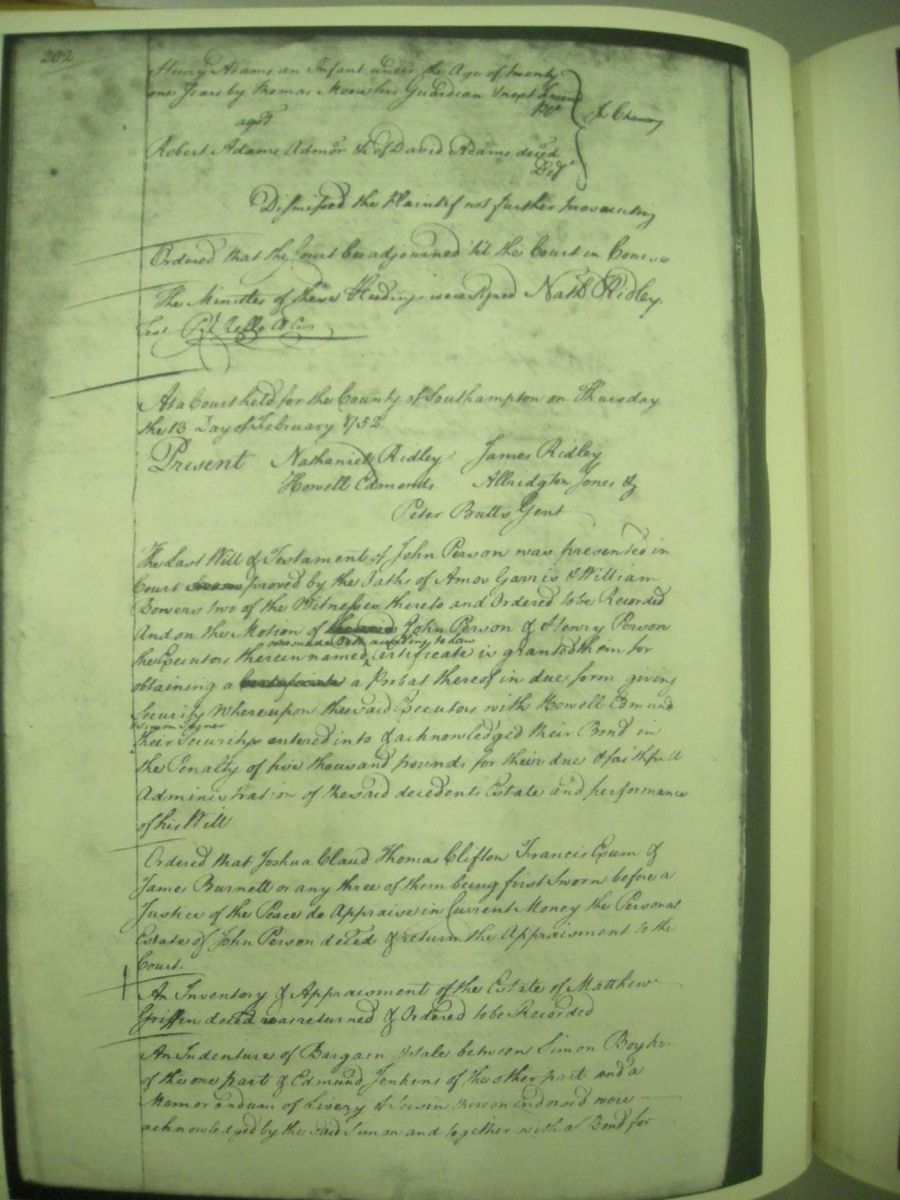 202
Henry Adams an Infant under the Age of twenty
one Years by Thomas Moor his Guardian & next Friend
Plt
In Chancery
agst
Robert Adams Admor &c of David Adams deced
Deft
Dismissed the Plaintif not further prosecuting
Ordered that the Court be adjourned 'til the Court in Course
The Minutes of these Proceedings were Signed Nathl Ridley.
Test
At a Court held for the County of Southampton on Thursday
the 13 Day of February 1752
Present Nathaniel Ridley James Ridley
Howell Edmonds Allridgton Jones &
Peter Butts Gent
The Last Will & Testament of John Person was presented in
Court proved by the Oaths of Amos Garris & William
Bowers two of the Witnesses thereto and Ordered to be Recorded
And on the Motion of John Person & Henry Person
who made Oath according to Law
the Executors therein named Certificate is granted them for
obtaining a a Probat thereof in due form giving
Security Whereupon the said Executors with Howell Edmund
& Simon
their Security entered into & acknowledged their Bond in
the Penalty of five thousand pounds for their due & faithfull
Administration of the said decedents Estate and performance
of his Will
Ordered that Joshua Claud Thomas Clifton Francis Exum &
James Burnett or any three of them being first Sworn before a
Justice of the Peace do Appraise in Current Money the Personal
Estate of John Person deced & return the Appraisment to the
Court.
An Inventory & Appraisment of the Estate of Matthew
Griffin deced was returned & Ordered to be Recorded
An Indenture of Bargain & Sale between Simon Boykin
of the one part & Edmund Jenkins of the other part and a
Memorandum of Livery & Seisin thereon endorsed were
acknowledged by the said Simon and together with a Bond for